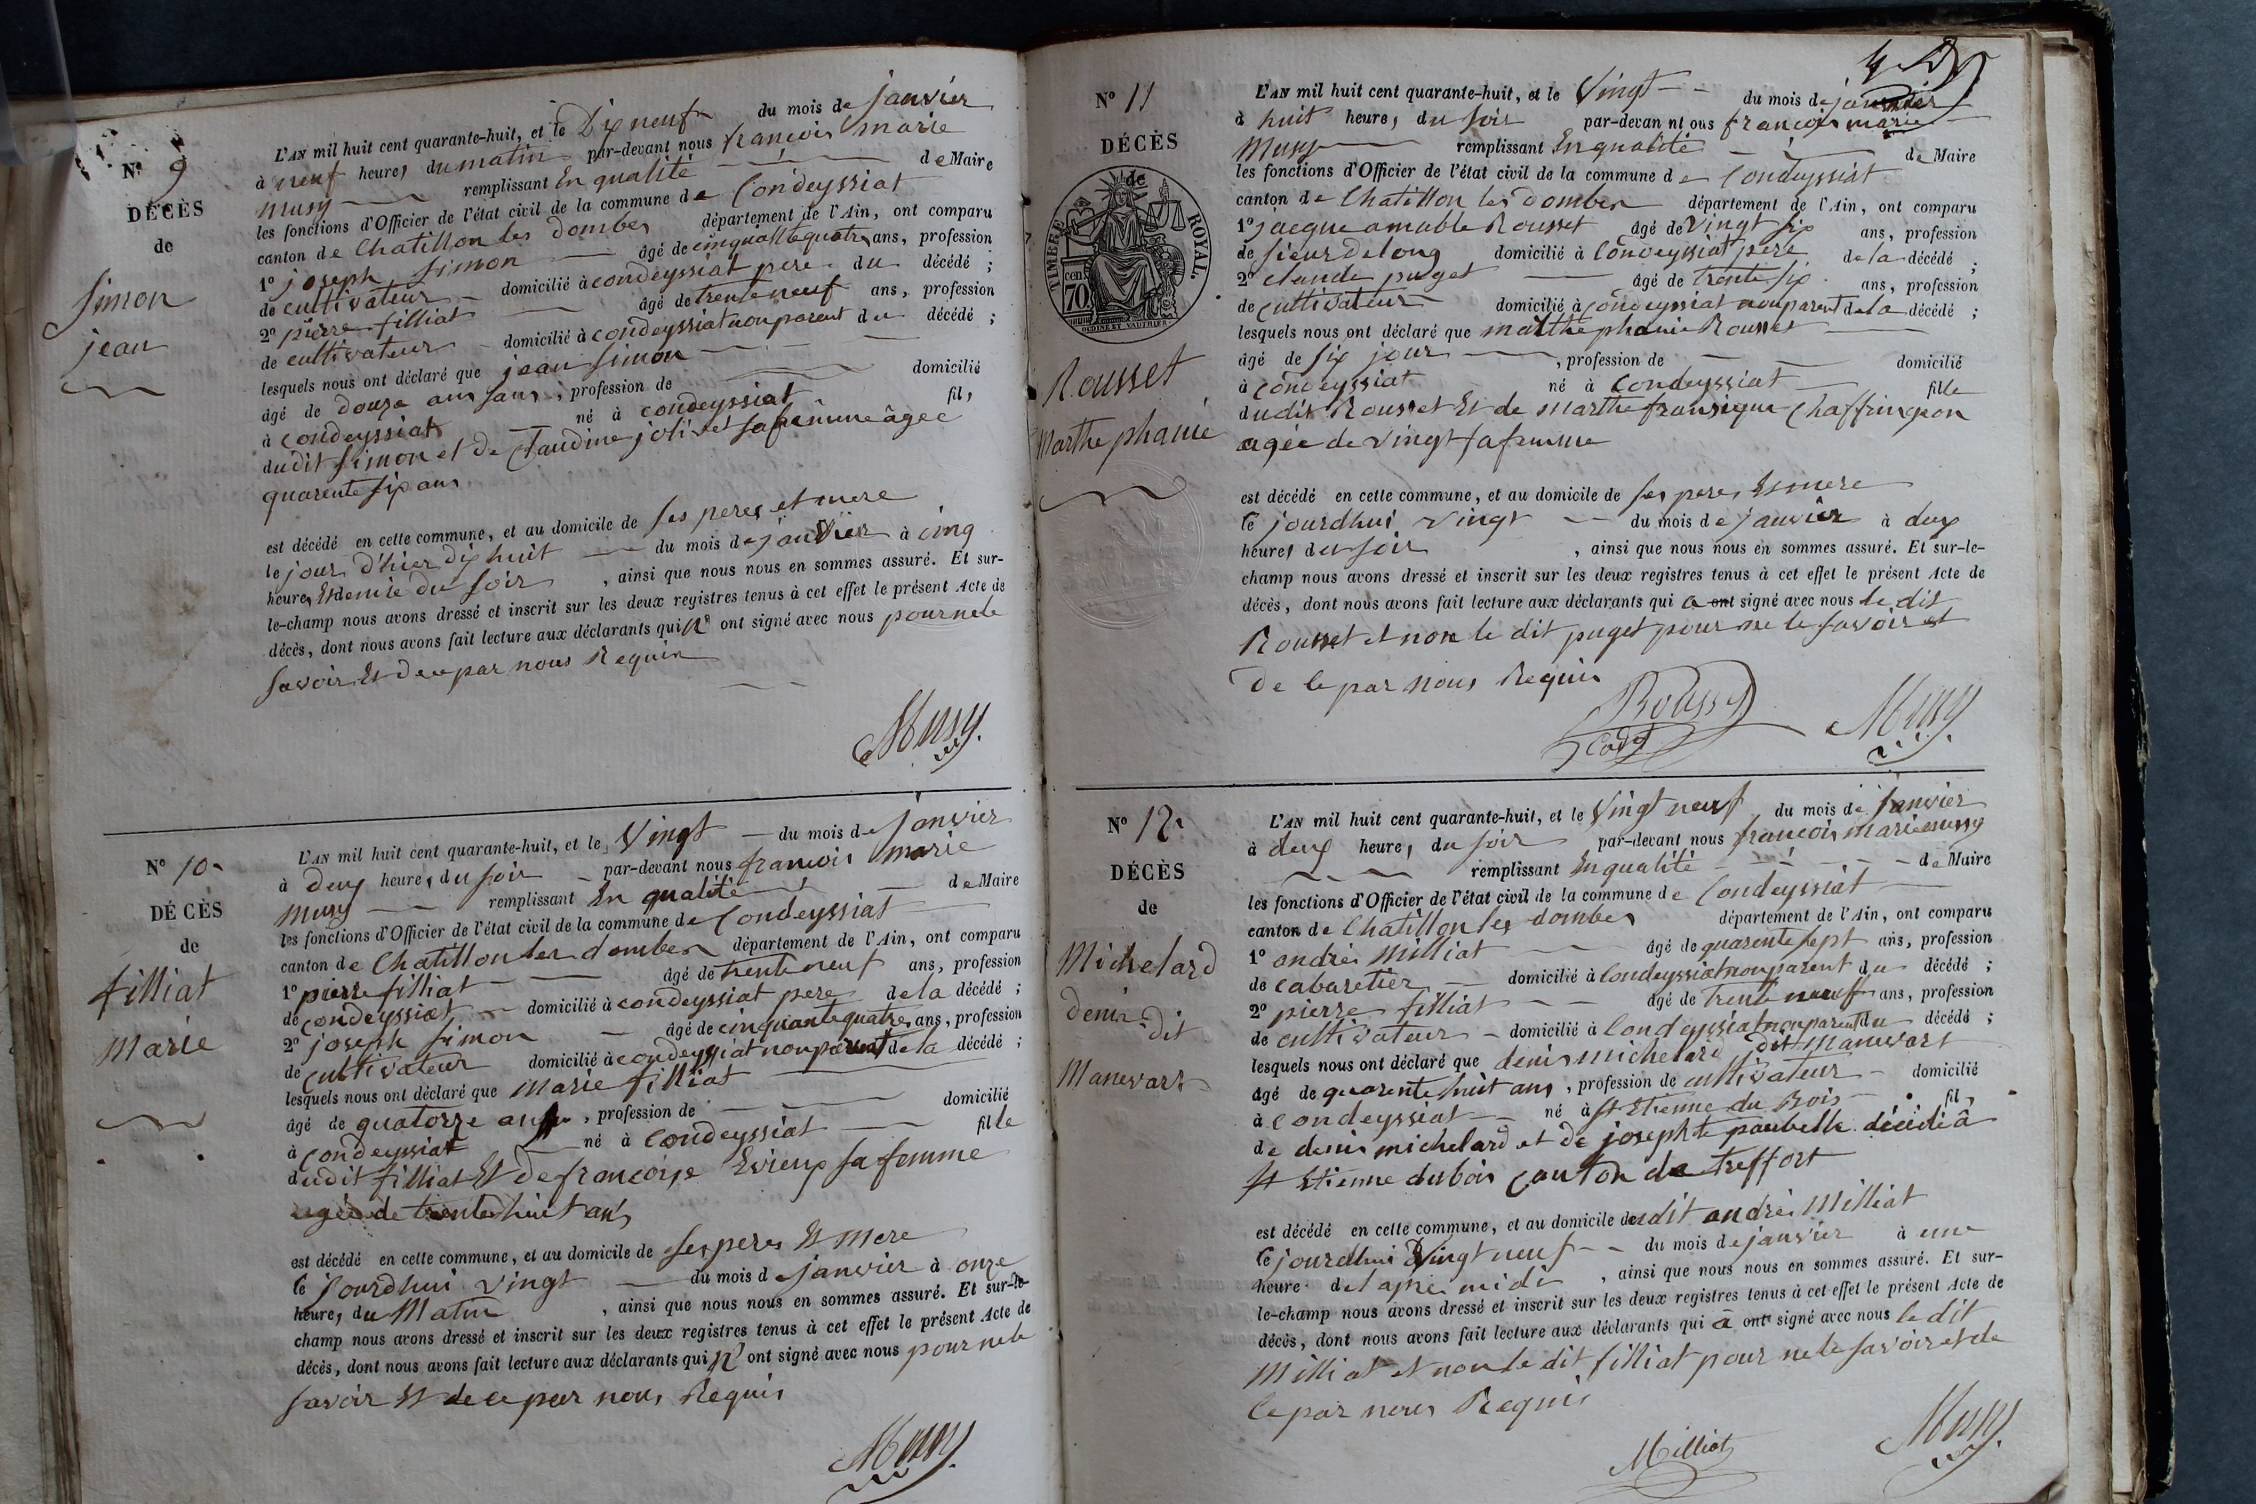 N° 9
DÉCÈS
de
Simon
jean
L'AN mil huit cent quarante-huit, et le Dix neuf du mois de janvier
à neuf heures du matin par-devant nous francois marie
Musy remplissant En qualité de Maire
les fonctions d'Officier de l'état civil de la commune de Condeyssiat
canton de Chatillon les dombes département de l'Ain, ont comparu
1° joseph Simon âgé de cinquante quatre ans, profession
de cultivateur domicilié à condeyssiat pere du décédé ;
2° pierre filliat âgé de trente neuf ans, profession
de cultivateur domicilié à condeyssiat non parent du décédé ;
lesquels nous ont déclaré que jean Simon
âgé de douze ans sans, profession de domicilié
à condeyssiat né à condeyssiat fils
dudit Simon et de Claudine jolivet sa femme âgée
quarente six ans
est décédé en cette commune, et au domicile de ses peres et mere
le jour d'hier dix huit du mois de janvier à cinq
heures Et demie du soir, ainsi que nous nous en sommes assuré. Et sur-
le-champ nous avons dressé et inscrit sur les deux registres tenus à cet effet le présent Acte de
décès, dont nous avons fait lecture aux déclarants qui n' ont signé avec nous pour ne le
savoir Et de ce par nous Requis
Musy
N° 10
DÉCÈS
de
filliat
Marie
L'AN mil huit cent quarante-huit, et le Vingt du mois de janvier
à deux heures du soir par-devant nous francois marie
Musy remplissant En qualité de Maire
les fonctions d'Officier de l'état civil de la commune de Condeyssiat
canton de Chatillon les dombes département de l'Ain, ont comparu
1° pierre filliat âgé de trente neuf ans, profession
de condeyssiat domicilié à condeyssiat pere de la décédé ;
2° joseph Simon âgé de cinquante quatre ans, profession
de cultivateur domicilié à condeyssiat non parent de la décédé ;
lesquels nous ont déclaré que Marie filliat
âgé de quatorze ans, profession de domicilié
à condeyssiat né à condeyssiat fille
dudit filliat Et de francoise Evieux sa femme
agée de trente huit ans
est décédé en cette commune, et au domicile de ses peres Et mere
le jourdhui vingt du mois de janvier à onze
heures du Matin, ainsi que nous nous en sommes assuré. Et sur-le-
champ nous avons dressé et inscrit sur les deux registres tenus à cet effet le présent Acte de
décès, dont nous avons fait lecture aux déclarants qui n' ont signé avec nous pour ne le
savoir Et de ce par nous Requis
Musy
N° 11
DÉCÈS
de
TIMBRE ROYAL.
70 cen
Rousset
Marthe phanie
L'AN mil huit cent quarante-huit, et le Vingt du mois de janvier
à huit heures du soir par-devan nt ous francois marie
Musy remplissant En qualité de Maire
les fonctions d'Officier de l'état civil de la commune de Condeyssiat
canton de Chatillon les dombes département de l'Ain, ont comparu
1° jacque amable Rousset âgé de Vingt six ans, profession
de sieur de long domicilié à Condeyssiat pere de la décédé ;
2° claude puget âgé de trente six ans, profession
de cultivateur domicilié à condeyssiat non parent de la décédé ;
lesquels nous ont déclaré que marthe phanie Rousset
âgé de six jour, profession de domicilié
à condeyssiat né à Condeyssiat fille
dudit Rousset Et de marthe fransique Chaffringeon
agée de vingt sa femme
est décédé en cette commune, et au domicile de ses peres Et mere
le jourdhui vingt du mois de janvier à deux
heures du soir, ainsi que nous nous en sommes assuré. Et sur-le-
champ nous avons dressé et inscrit sur les deux registres tenus à cet effet le présent Acte de
décès, dont nous avons fait lecture aux déclarants qui a ont signé avec nous le dit
Rousset et non le dit puget pour ne le savoir et
de ce par nous Requis
Rousset
Musy
N° 12
DÉCÈS
de
Michelard
denis dit
Manevart
L'AN mil huit cent quarante-huit, et le Vingt neuf du mois de janvier
à deux heures du soir par-devant nous francois marie musy
remplissant En qualité de Maire
les fonctions d'Officier de l'état civil de la commune de Condeyssiat
canton de Chatillon les dombes département de l'Ain, ont comparu
1° andré Milliat âgé de quarente sept ans, profession
de cabaretier domicilié à Condeyssiat non parent du décédé ;
2° pierre filliat âgé de trente neuf ans, profession
de cultivateur domicilié à Condeyssiat non parent du décédé ;
lesquels nous ont déclaré que denis michelard dit Manevart
âgé de quarente huit ans, profession de cultivateur domicilié
à Condeyssiat né à St Etienne du Bois fils
de denis michelard et de josephte paubelle décédé à
St Etienne du bois canton de treffort
est décédé en cette commune, et au domicile dudit andré Milliat
le jourdhui Vingt neuf du mois de janvier à une
heure de l apres midi, ainsi que nous nous en sommes assuré. Et sur-
le-champ nous avons dressé et inscrit sur les deux registres tenus à cet effet le présent Acte de
décès, dont nous avons fait lecture aux déclarants qui a ont signé avec nous le dit
Milliat et non le dit filliat pour ne le savoir et de
ce par nous Requis
Milliat
Musy